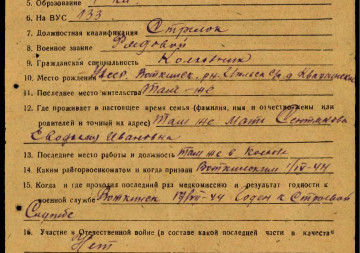 5. Образование
6. На ВУС 133
7. Должностная квалификация Стрелок
8. Военное звание Рядовой
9. Гражданская специальность Колхозник
10. Место рождения Воткинск. рн.
11. Последнее место жительства Там-же
12. Где проживает в настоящее время семья (фамилия, имя и отчество жены или
родителей и точный их адрес) Там же Мать
Ивановна
13. Последнее место работы и должность Там же в Колхозе
14. Каким райгорвоенкоматом и когда призван Воткинским
15. Когда и где проходил последний раз медкомиссию и результат годности к
военной службе Воткинск Годен к Строевой
Службе
16. Участие в Отечественной войне (в составе какой последней части в качестве
Нет